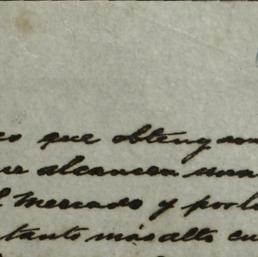 que obtengan
alcancen una
mercado y por lo
tanto más alto cu